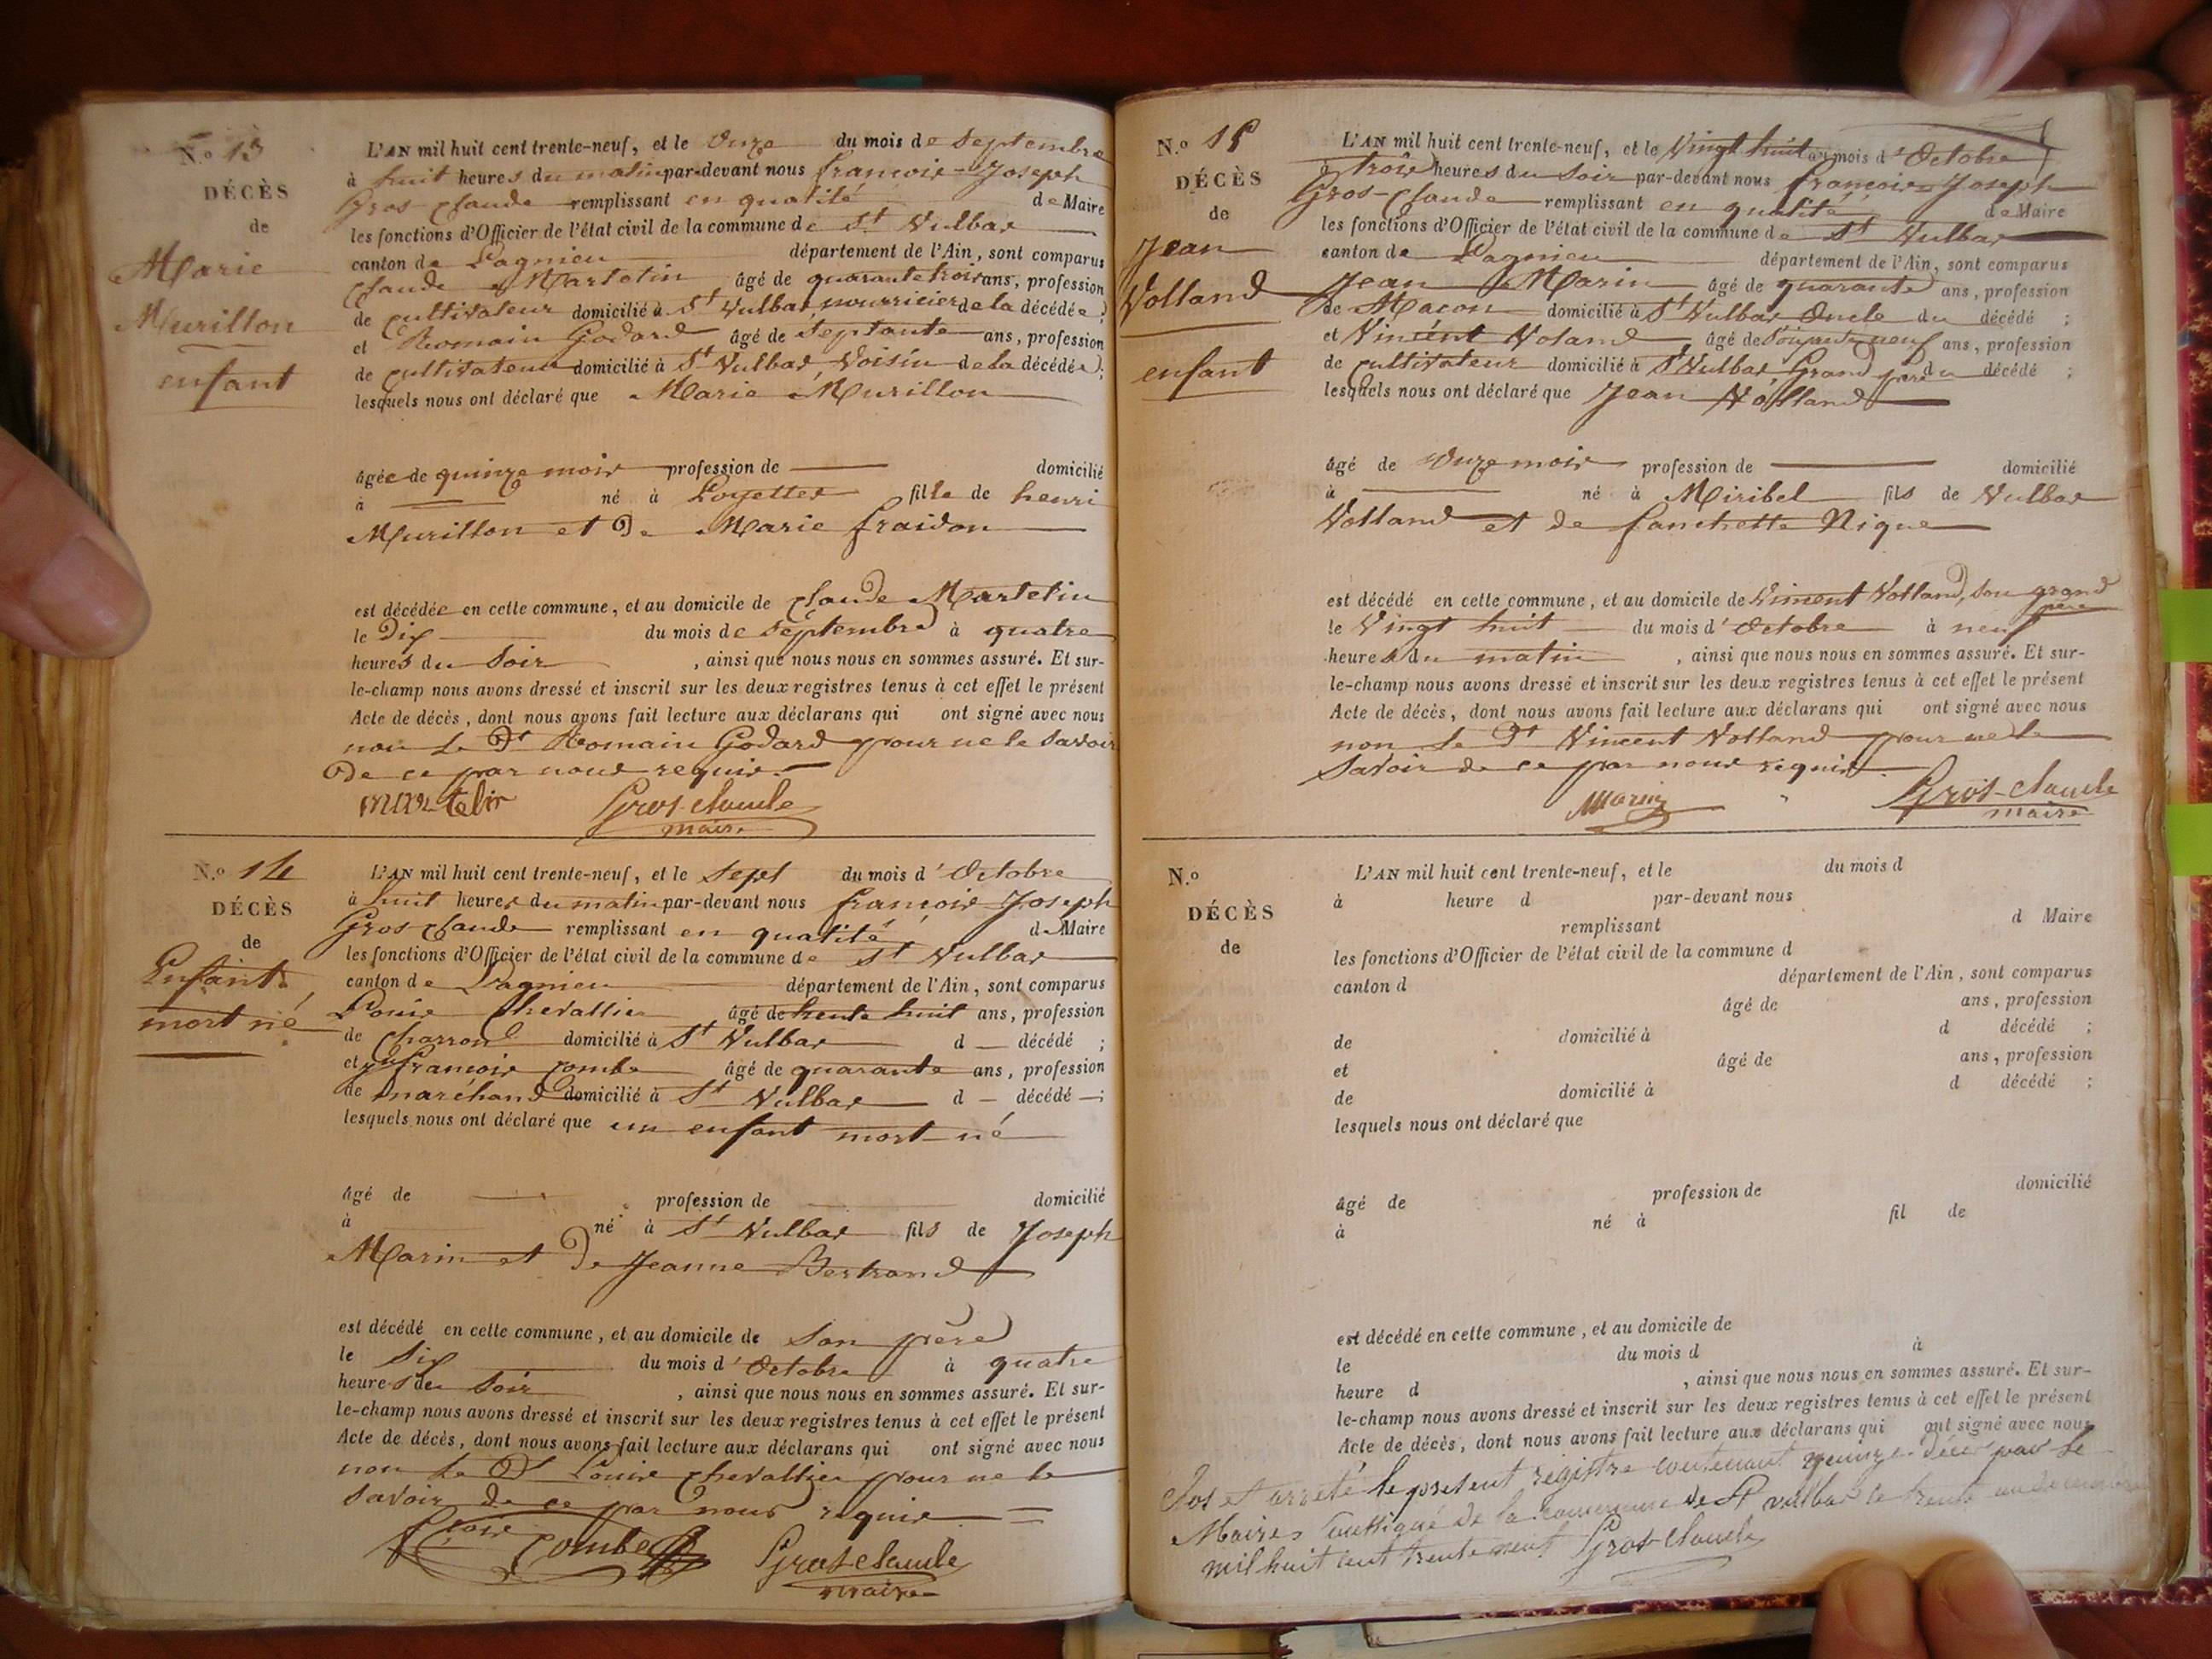 N.o 13
DÉCÈS
de
Marie
Murillon
enfant
L'AN mil huit cent trente-neuf, et le Onze du mois de Septembre
à huit heures du matin par-devant nous françois-Joseph
Gros-Claude remplissant en qualité de Maire
les fonctions d'Officier de l'état civil de la commune de St Vulbas
canton de Lagnieu département de l'Ain, sont comparus
Claude Martelin âgé de quarante trois ans, profession
de cultivateur domicilié à St Vulbas, nourricier de la décédée ;
et Romain Godard âgé de septante ans, profession
de cultivateur domicilié à St Vulbas, Voisin de la décédée ;
lesquels nous ont déclaré que Marie Murillon
âgée de quinze mois profession de domicilié
à né à Loyettes fille de henri
Murillon et De Marie fraidon
est décédée en cette commune, et au domicile de Claude Martelin
le Dix du mois de Septembre à quatre
heures du Soir , ainsi que nous nous en sommes assuré. Et sur-
le-champ nous avons dressé et inscrit sur les deux registres tenus à cet effet le présent
Acte de décès, dont nous avons fait lecture aux déclarans qui ont signé avec nous
non le Dt Romain Godard pour ne le Savoir
De ce par nous requis.
martelin Gros-claude
maire
N.o 14
DÉCÈS
de
Enfant
mort né
L'AN mil huit cent trente-neuf, et le Sept du mois d'Octobre
à huit heures du matin par-devant nous françois-Joseph
Gros-Claude remplissant en qualité de Maire
les fonctions d'Officier de l'état civil de la commune de St Vulbas
canton de Lagnieu département de l'Ain, sont comparus
Louis Chevallier âgé de trente huit ans, profession
de Charron domicilié à St Vulbas d — décédé ;
et françois Combe âgé de quarante ans, profession
de maréchand domicilié à St Vulbas d — décédé — ;
lesquels nous ont déclaré que un enfant mort-né
âgé de profession de domicilié
à né à St Vulbas fils de Joseph
Marin et De Jeanne Bertrand
est décédé en cette commune, et au domicile de Son père
le Six du mois d'Octobre à quatre
heures du Soir , ainsi que nous nous en sommes assuré. Et sur-
le-champ nous avons dressé et inscrit sur les deux registres tenus à cet effet le présent
Acte de décès, dont nous avons fait lecture aux déclarans qui ont signé avec nous
non le Dt Louis Chevallier pour ne le
Savoir de ce par nous requis
Combe Gros-claude
maire
N.o 15
DÉCÈS
de
Jean
Volland
enfant
L'AN mil huit cent trente-neuf, et le Vingt huit du mois d'Octobre
à trois heures du Soir par-devant nous françois-Joseph
Gros-Claude remplissant en qualité de Maire
les fonctions d'Officier de l'état civil de la commune de St Vulbas
canton de Lagnieu département de l'Ain, sont comparus
Jean Marin âgé de quarante ans, profession
de Macon domicilié à St Vulbas Oncle du décédé ;
et Vincent Voland âgé de Soixante neuf ans, profession
de cultivateur domicilié à St Vulbas Grand père du décédé ;
lesquels nous ont déclaré que Jean Volland
âgé de Onze mois profession de domicilié
à né à Miribel fils de Vulbas
Volland et de fanchette Nique
est décédé en cette commune, et au domicile de Vincent Volland, Son grand
père
le Vingt huit du mois d'Octobre à neuf
heures du matin , ainsi que nous nous en sommes assuré. Et sur-
le-champ nous avons dressé et inscrit sur les deux registres tenus à cet effet le présent
Acte de décès, dont nous avons fait lecture aux déclarans qui ont signé avec nous
non le Dt Vincent Volland pour ne le
Savoir de ce par nous requis
Marin Gros-claude
maire
N.o
DÉCÈS
de
L'AN mil huit cent trente-neuf, et le du mois d
à heure d par-devant nous
remplissant d Maire
les fonctions d'Officier de l'état civil de la commune d
canton d département de l'Ain, sont comparus
âgé de ans, profession
de domicilié à d décédé ;
et âgé de ans, profession
de domicilié à d décédé ;
lesquels nous ont déclaré que
âgé de profession de domicilié
à né à fil de
est décédé en cette commune, et au domicile de
le du mois d à
heure d , ainsi que nous nous en sommes assuré. Et sur-
le-champ nous avons dressé et inscrit sur les deux registres tenus à cet effet le présent
Acte de décès, dont nous avons fait lecture aux déclarans qui ont signé avec nous
Clos et arreté le present régistre contenant quinze déces par le
Maire Soussigné de la commune de St vulbas le trente un decembre
mil huit cent trente neuf Gros-claude